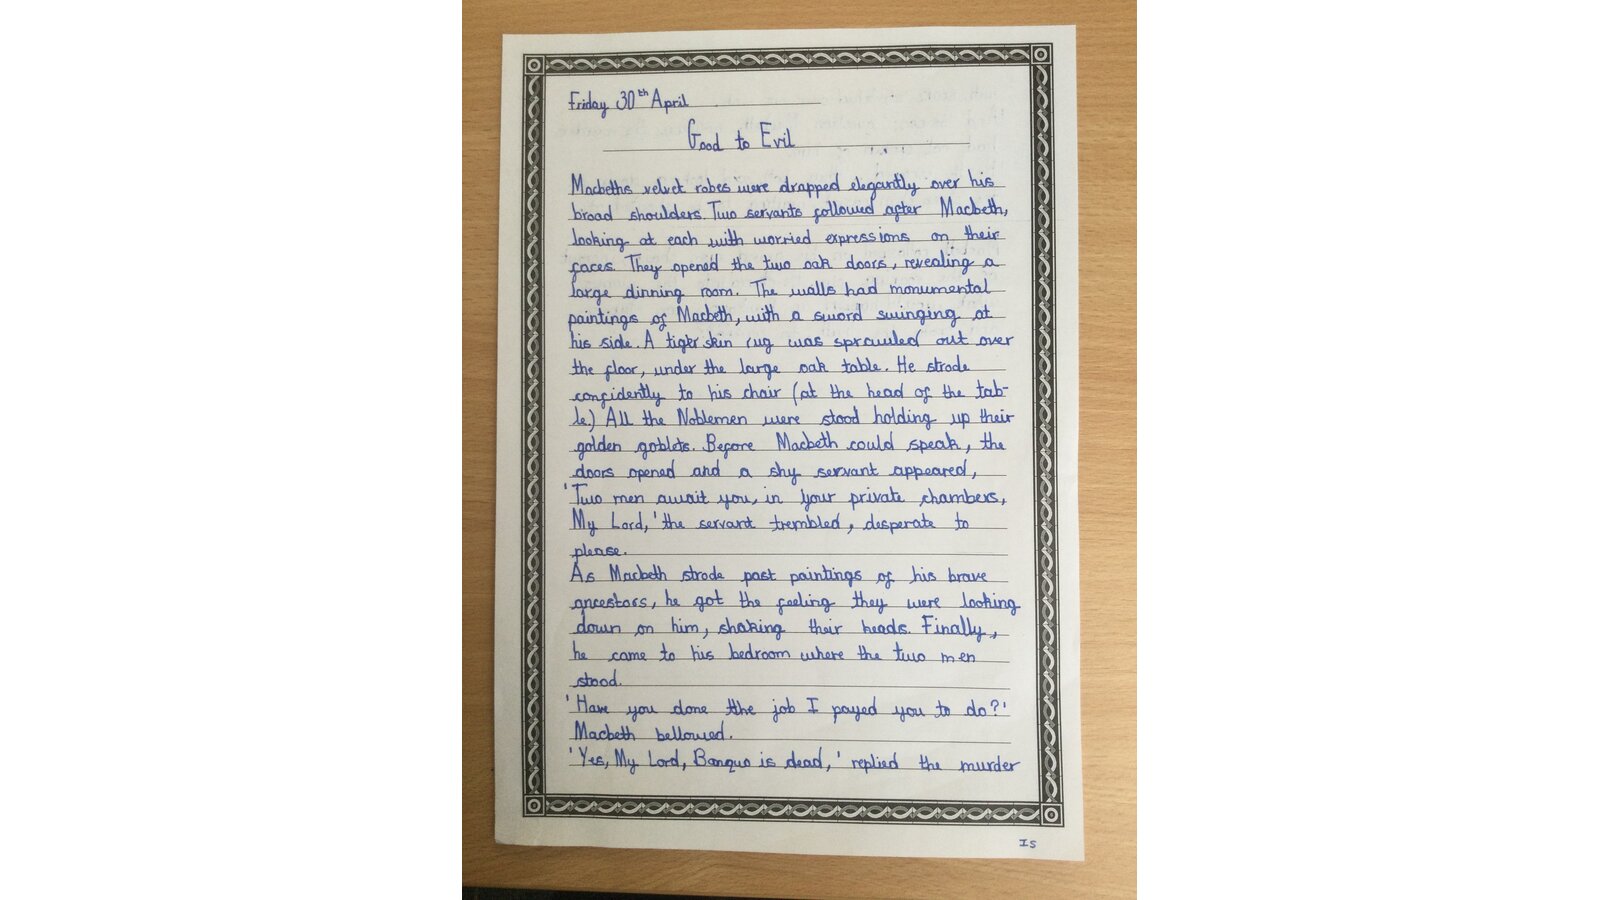 Friday 30th April
Good to Evil
Macbeths velvet robes were drapped elegantly over his
broad shoulders. Two servants followed after Macbeth,
looking at each with worried expressions on their
faces. They opened the two oak doors, revealing a
large dinning room. The walls had monumental
paintings of Macbeth, with a sword swinging at
his side. A tiger skin rug was sprawled out over
the floor, under the large oak table. He strode
confidently to his chair (at the head of the tab-
le.) All the Noblemen were stood holding up their
golden goblets. Before Macbeth could speak, the
doors opened and a shy servant appeared,
'Two men await you, in your private chambers,
My Lord,' the servant trembled, desperate to
please.
As Macbeth strode past paintings of his brave
ancestors, he got the feeling they were looking
down on him, shaking their heads. Finally,
he came to his bedroom where the two men
stood.
'Have you done tthe job I payed you to do?'
Macbeth bellowed.
'Yes, My Lord, Banquo is dead,' replied the murder
IS